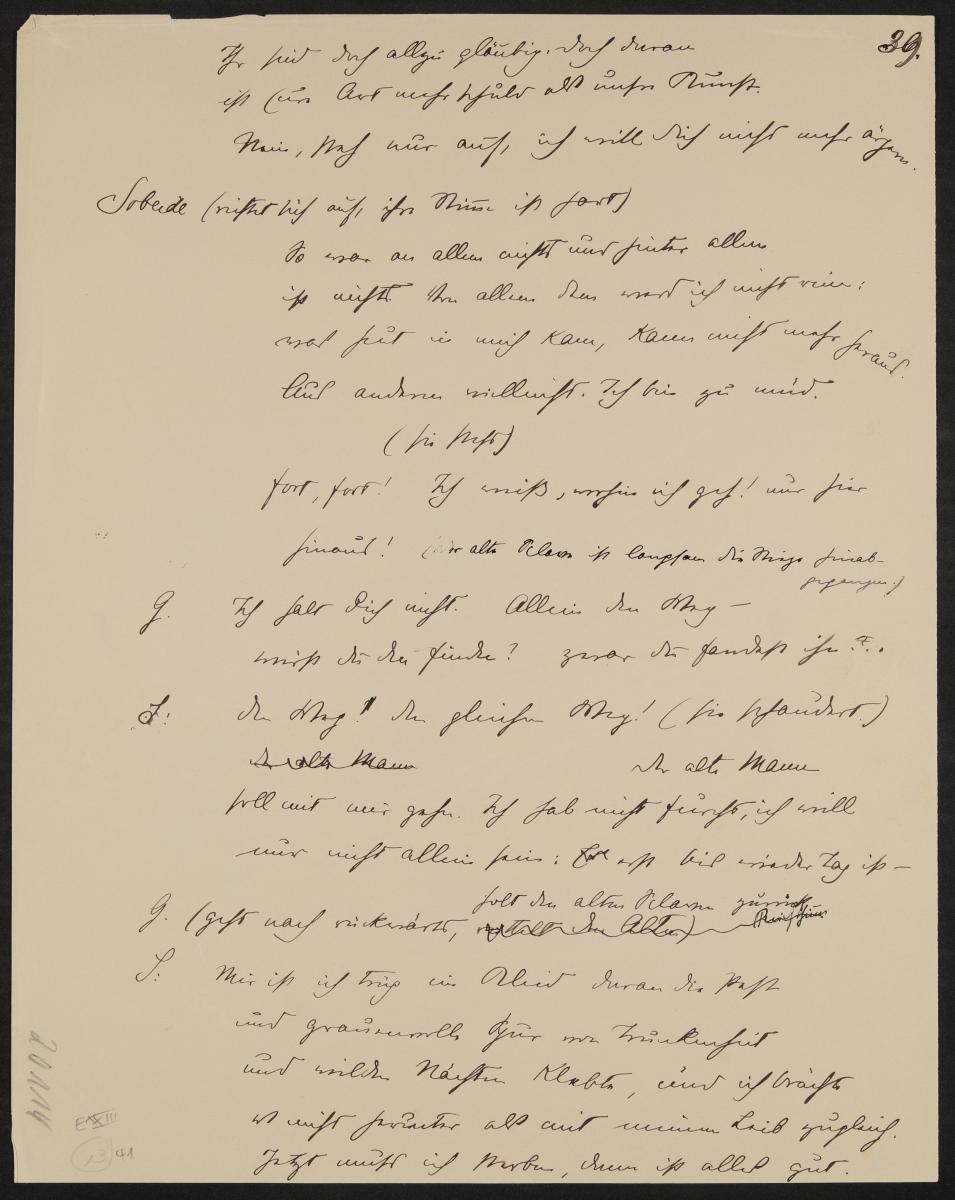 39.
Ihr seid doch allzu gläubig. Doch daran
ist eure Art mehr schuld als unsre Kunst.
Nein, steh nur auf, ich will dich nicht mehr ärgern.
Sobeide (richtet sich auf, ihre Stimme ist hart)
So war an allem nichts und hinter allem
ist nichts. Von allem dem werd ich nicht rein:
was heut in mich kam, kann nicht mehr heraus.
Aus anderen vielleicht. Ich bin zu müd.
(sie steht)
fort, fort! Ich weiß, wohin ich geh! nur hier
hinaus! (Der alte Sclave ist langsam die Stiege hinab-
gegangen.)
G. Ich halt Dich nicht. Allein den Weg –
wirst du den finden? zwar du fandest ihn . .
S: den Weg! den gleichen Weg! (sie schaudert.)
der alte Mann
der alte Mann
soll mit mir gehn. Ich hab nicht furcht, ich will
nur nicht allein sein: erst bis wieder Tag ist –
holt den alten Sclaven zurück
G. (geht nach rückwärts, den Alten)
S: Mir ist ich trüg ein Kleid daran die Pest
und grauenvolle Spur von Trunkenheit
und wilden Nächten klebte, und ich brächte
es nicht herunter als mit meinem Leib zugleich.
Jetzt muss ich sterben, dann ist alles gut.
20114
EIVXIII
13
41